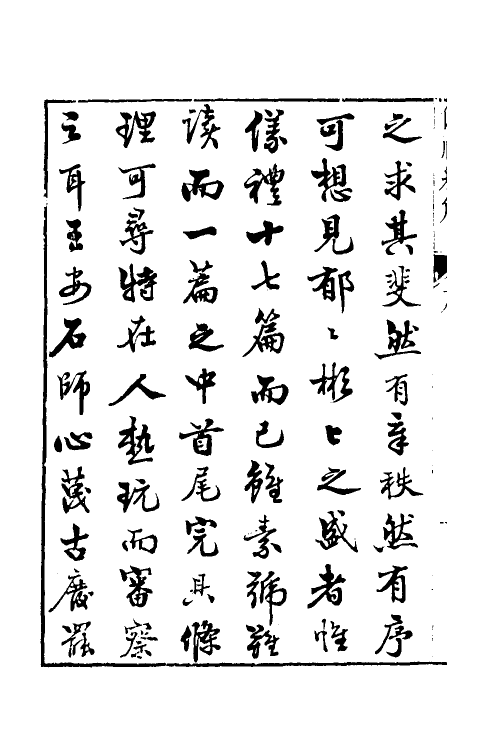 之求其斐然有章秩然有序
可想見郁〻彬〻之盛者惟
儀禮十七篇而已雖素號難
读而一篇之中首尾完具條
理可尋特在人熟玩而審察
之耳王安石師心蔑古廢罷